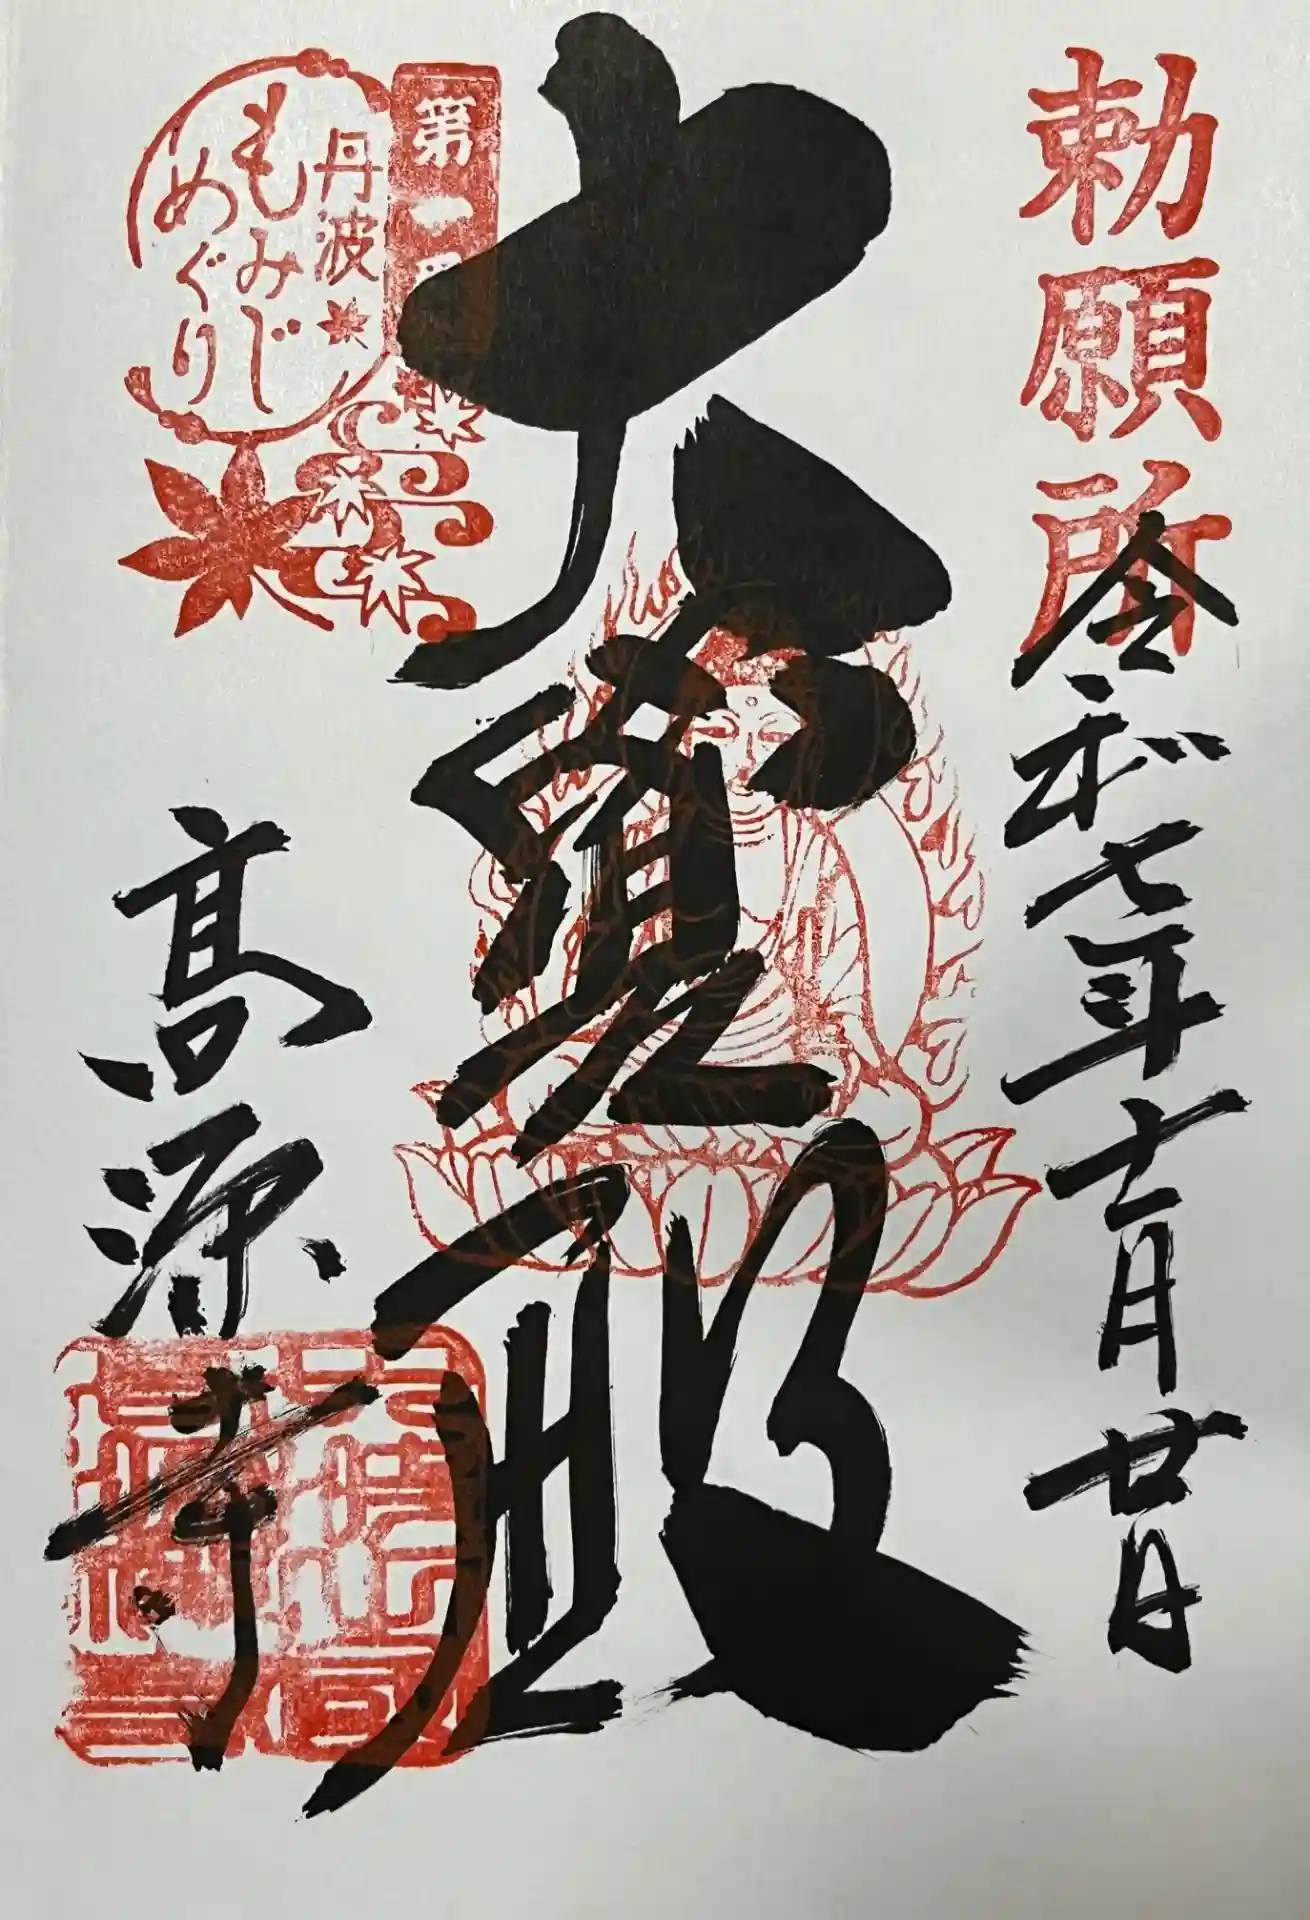 勅願所
令和七年十一月廿日
大寶殿
第一
丹波
もみじ
めぐり
高源寺